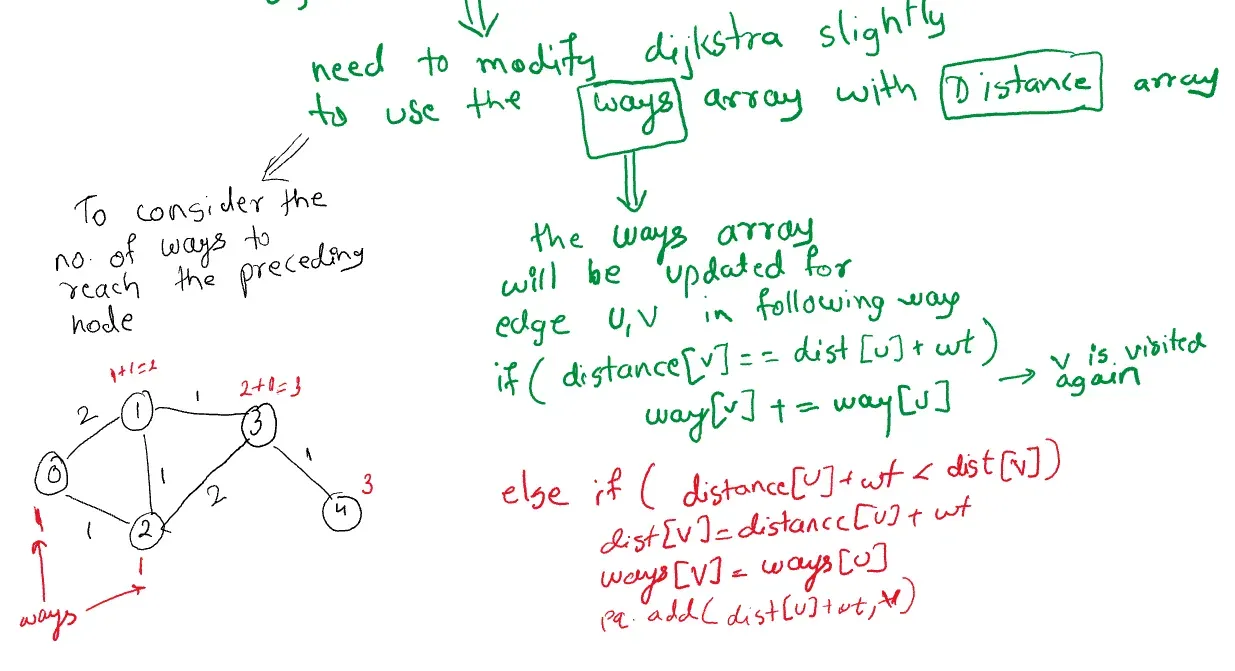 need to modify dijkstra slightly
to use the ways array with Distance array
To consider the
no. of ways to
reach the preceding
node
the ways array
will be updated for
edge U,V in following way
if ( distance[V] == dist [U] + wt )
way[V] += way[U]
→ V is visited
again
else if ( distance[U] + wt < dist[V])
dist[V] = distance[U] + wt
ways[V] = ways[U]
pq. add( dist[U] + wt, V)
1+1=2
2+1=3
2
1
1
3
0
1
1
2
2
1
4
3
1
1
ways